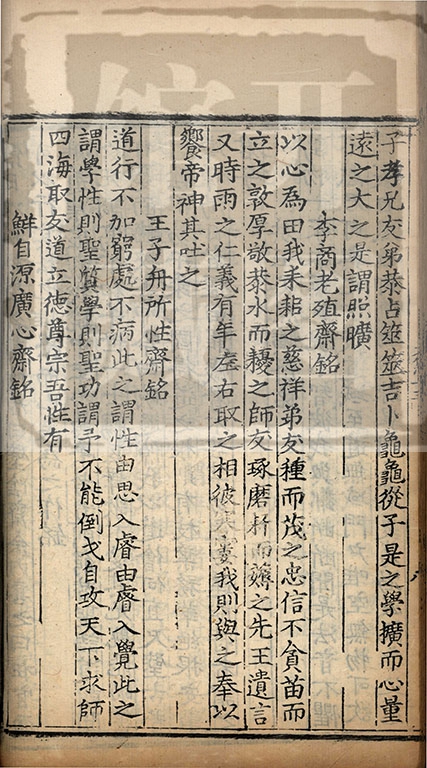 子孝兄友弟恭占筮筮吉卜龜龜從子是之學擴而心量
遠之大之是謂照曠
李商老殖齋銘
以心為田我耒耜之慈祥弟友種而茂之忠信不貪苗而
立之敦厚敬恭水而耰之師友琢磨耔而薅之先王遺言
又時雨之仁義有年左右取之相彼我則與之奉以
饗帝神其吐之
王子舟所性齋銘
道行不加窮處不病此之謂性由思入睿由睿入覺此之
謂學性則聖質學則聖功謂予不能倒戈自攻天下求師
四海取友道立德尊宗吾性有
鮮自源廣心齋銘